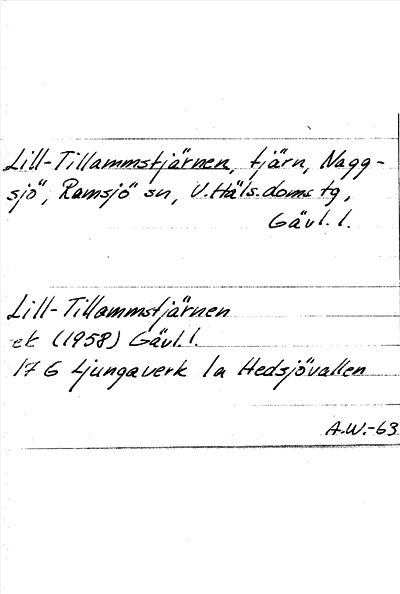 Lill-Tillammstjärnen, tjärn, Nagg-
sjö, Ramsjö sn, V. Häls. doms tg,
Gävl. l.
Lill-Tillammstjärnen
ek (1958) Gävl. l.
17 G Ljungaverk 1a Hedsjövallen
A.W.-63